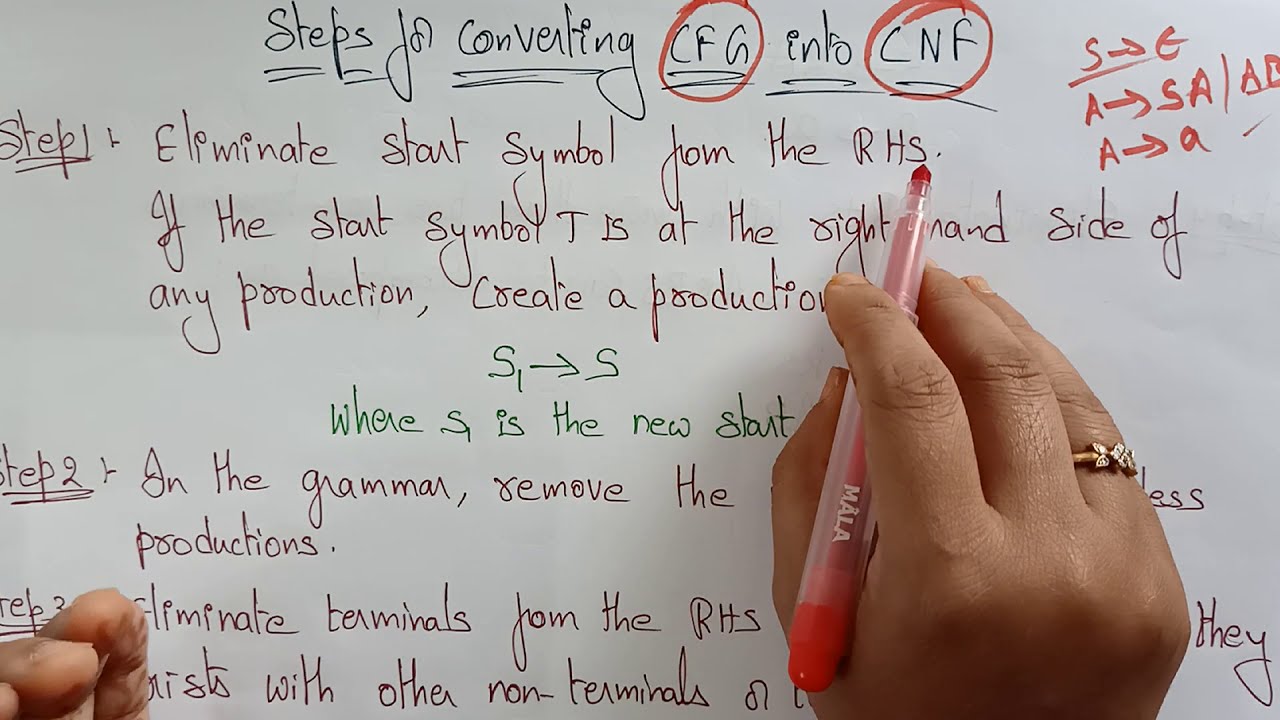 Steps for converting CFG into CNF
S→ε
A→SA|AB
A→a
Step1:- Eliminate start symbol from the RHS.
If the start symbol T is at the right hand side of
any production, Create a production
S₁→S
where S₁ is the new start
Step2:- In the grammar, remove the
productions.
Step3 Eliminate terminals from the RHS they
with other non-terminals or
MALA